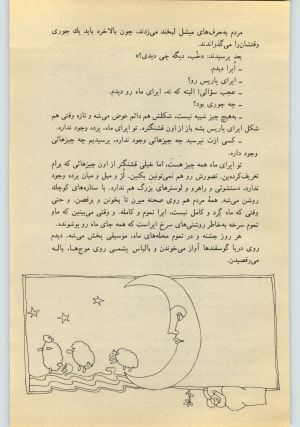 مردم به‌حرف‌های میشل لبخند می‌زدند، چون بالاخره باید یك جوری
وقتشان‌را می‌گذراندند.
بعد پرسیدند: «خُب، دیگه چی دیدی؟»
ـ اُپرا دیدم.
ـ اپرای پاریس رو؟
ـ عجب سؤالی! البته که نه، اپرای ماه رو دیدم.
ـ چه جوری بود؟
ـ به‌هیچ چیز شبیه نیست، شکلش هم دائم عوض می‌شه و تازه وقتی هم
شکل اپرای پاریس بشه باز از اون قشنگتره. تو اپرای ماه، پرده وجود نداره.
ـ کسی ازت نپرسید چه چیزهائی وجود نداره، پرسیدیم چه چیزهائی
وجود داره.
تو اپرای ماه همه چیز هست، اما خیلی قشنگتر از اون چیزهائی که برام
تعریف‌کرده‌ین. تصورش رو هم نمی‌تونین بکنین. لُژ و مبل و میان پرده وجود
نداره. دستشوئی و راهرو و لوسترهای بزرگ هم نداره. با ستاره‌های کوچك
روشن می‌شه. همۀ مردم هم روی صحنه میرن تا بخونن و برقصن. و حتی
وقتی که ماه گِرد و کامل نیست، اپرا تموم و کامله. و وقتی می‌بینین که ماه
تموم سرخه به‌خاطر روشنی‌های سرخ اپراست که همه جای ماه رو پوشونده.
هر روز جشنه و در تموم محله‌های ماه، موسیقی پخش می‌شه. دیدم
روی دریا گوسفندها آواز می‌خوندن و بالباس پشمی روی موج‌هـا، بالـه
می‌رقصیدن.